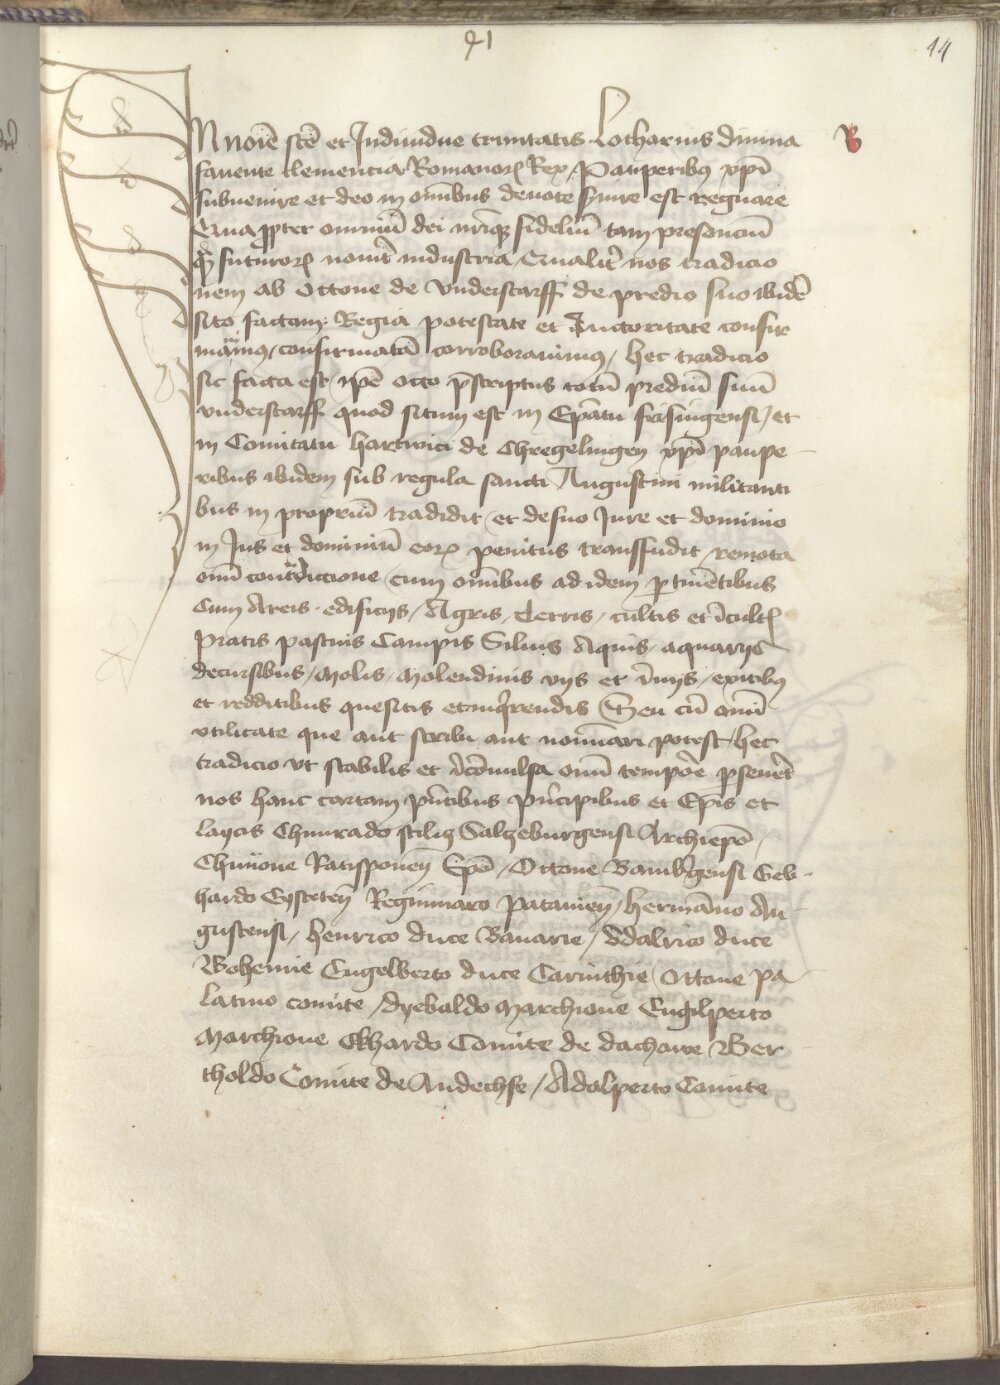 91
44
IN no͞ie s͞cte et Indiuidue trinitatis Lotharius diuina
B
fauente clementia Romanoꝝ Rex Pauperibꝰ xp͞i
subuenire et deo in om̄ibus deuote s̄uire est regnare
Qua ꝓpter omniū dei n͞riqꝫ fideliū tam presenciū
q̄ȝ futuroꝝ nouit̄ industria Qualit̄ nos tradicio
nem ab Ottone de Vnderstarff de predio suo ibidē
sito factam Regia potestate et Auctoritate confir
mamꝰ, confirmatā corroborauimꝰ, hec tradicio
sic facta est ip̄e Otto p̄scriptus totū prediū suū
vnderstarff quod situm est in Ep̄atu frisingensi, et
in Comitatu hartwici de Chregelingen xp͞i paupe
ribus ibidem sub regula sancti Augustini militanti
bus in propriū tradidit, et de suo Jure et dominio
in Jus et dominiū eoꝝ penitus transfudit, remota
om̄i cont̄diccione, cum om̄ibus ad idem ꝑtinētibus
Cum Areis, edificijs, Agris, Terris, cultis et īcultꝭ
Pratis pascuis Campis Siluis Aquis, aquarūqꝫ
decursibus, Molis, Molendinis vijs et īuijs, exitibꝰ
et redditibus quesitis et inq̄rendis Seu cū om̄i
vtilitate que aut scribi aut nom̄nari potest, hec
tradicio vt stabilis et īcōuulsa om̄i tempōe ꝑseuet̄
nos hanc cartam p̄ntibus p̄ncipibus et Ep̄is et
laycis Chunrado scilicꝫ Salzeburgensi Archiep̄o,
Chunone Ratisponen̄ Ep̄o, Ottone Bamb̄gensi Geb
hardo Eysteten̄ Reginmaro Patauien̄, hermānno Au
gustensi, henrico duce Bauarie, Vdalrico duce
Bohemie Engelberto duce Carinthie, Ottone Pa
latino comite, Dyebaldo Marchione Engilperto
Marchione Ekhardo Comite de dachowe Ber
tholdo Comite de Andechse, Adolperto Comite